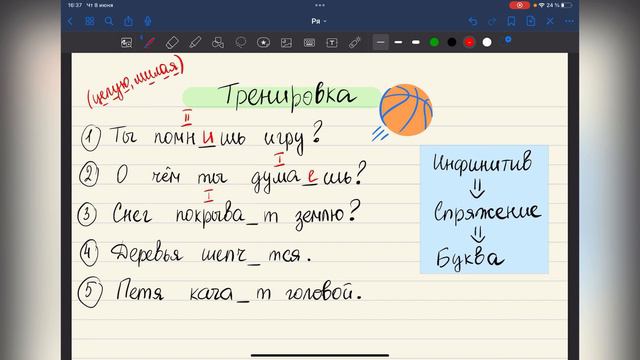 16:37 Чт 8 июня
24 %
Ря
(целую, милая)
Тренировка
II
① Ты помнишь игру?
I
② О чём ты думаешь?
I
③ Снег покрыва_т землю?
④ Деревья шепч_тся.
⑤ Петя кача_т головой.
Инфинитив
⇓
Спряжение
⇓
Буква